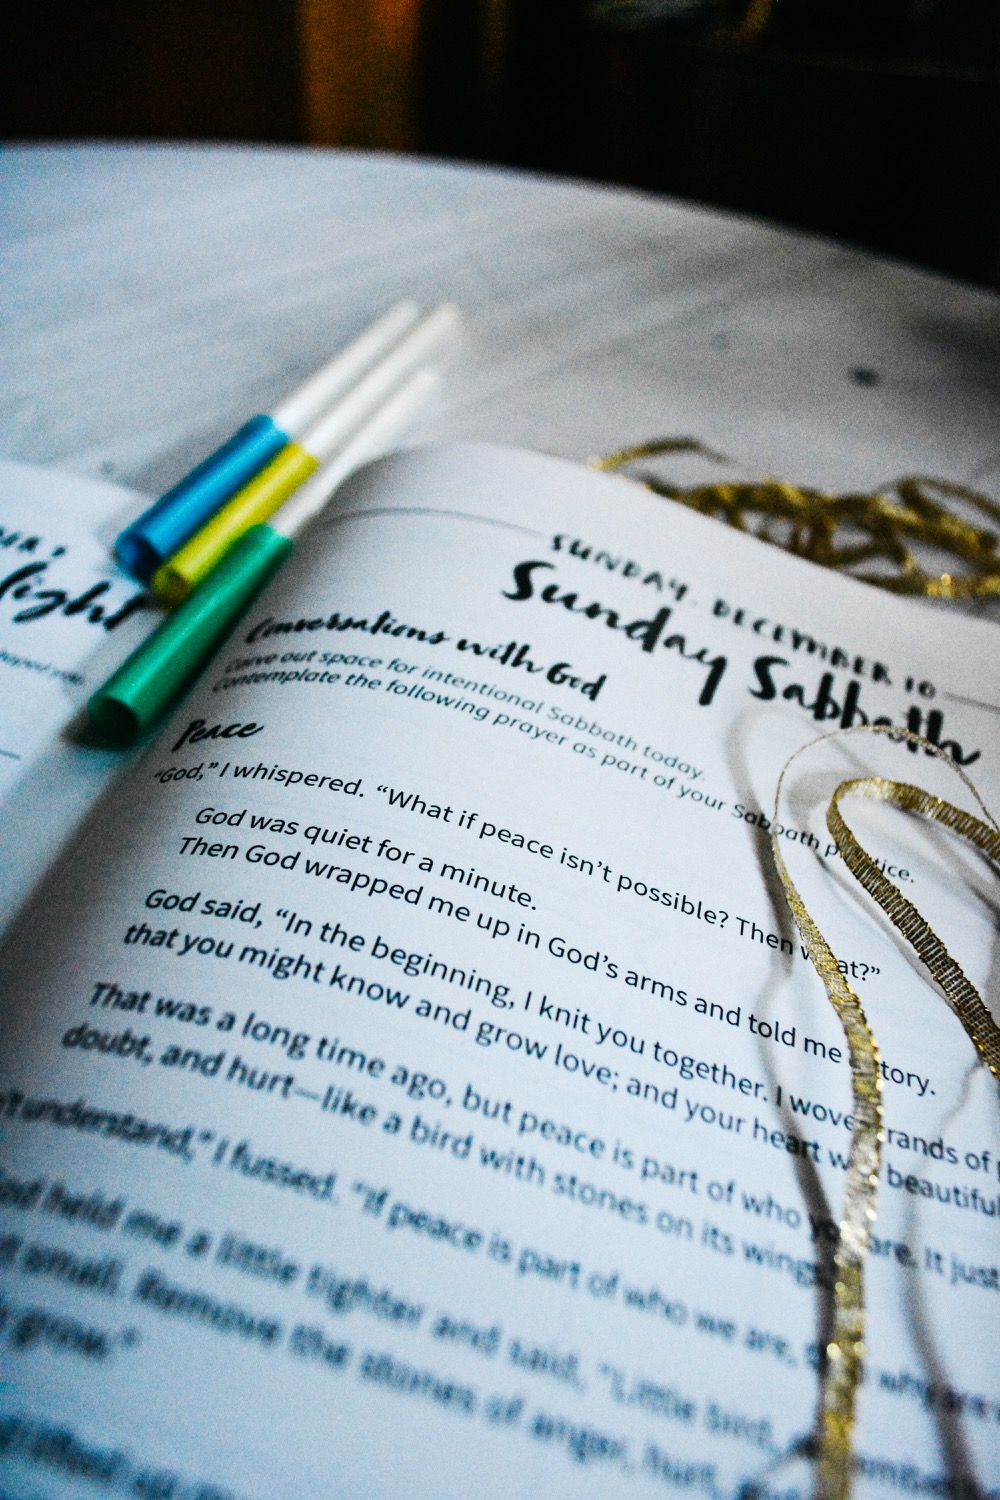 light
SUNDAY, DECEMBER 10
Sunday Sabbath
Conversations with God
Carve out space for intentional Sabbath today.
Contemplate the following prayer as part of your Sabbath practice.
Peace
"God," I whispered. "What if peace isn't possible? Then what?"
God was quiet for a minute.
Then God wrapped me up in God's arms and told me a story.
God said, "In the beginning, I knit you together. I wove strands of
that you might know and grow love; and your heart was beautiful
That was a long time ago, but peace is part of who you are. It just
doubt, and hurt—like a bird with stones on its wings
understand," I fussed. "If peace is part of who we are, why are
held me a little tighter and said, "Little bird,
small. Remove the stones of anger, hurt,
grow."